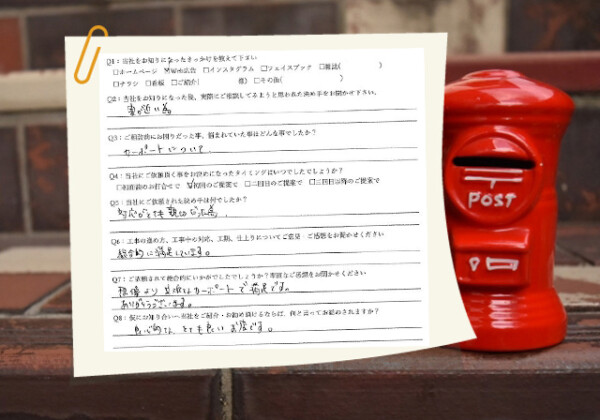 Q1：当社をお知りになったきっかけを教えて下さい
□ホームページ ☑Web広告 □インスタグラム □フェイスブック □雑誌( )
□チラシ □看板 □ご紹介( 様) □その他( )
Q2：当社をお知りになった後、実際にご相談してみようと思われた決め手をお聞かせ下さい。
家が近い為
Q3：ご相談前にお困りだった事、悩まれていた事はどんな事でしたか？
カーポートについて
Q4：当社にご依頼頂く事をお決めになったタイミングはいつでしたでしょうか？
□相談前のお打合せで ☑初回のご提案で □二回目のご提案で □三回目以降のご提案で
Q5：当社にご依頼された決め手は何でしたか？
対応がとても親切だった為
Q6：工事の進め方、工事中の対応、工期、仕上りについてご意見・ご感想をお聞かせください
総合的に満足しています。
Q7：ご依頼されて総合的にいかがでしたでしょうか？率直なご感想をお聞かせください
想像より立派なカーポートで満足です。
ありがとうございます。
Q8：仮にお知り合いへ当社をご紹介・お勧め頂けるならば、何と言ってお勧めされますか？
良心的な、とても良いお店です。
POST